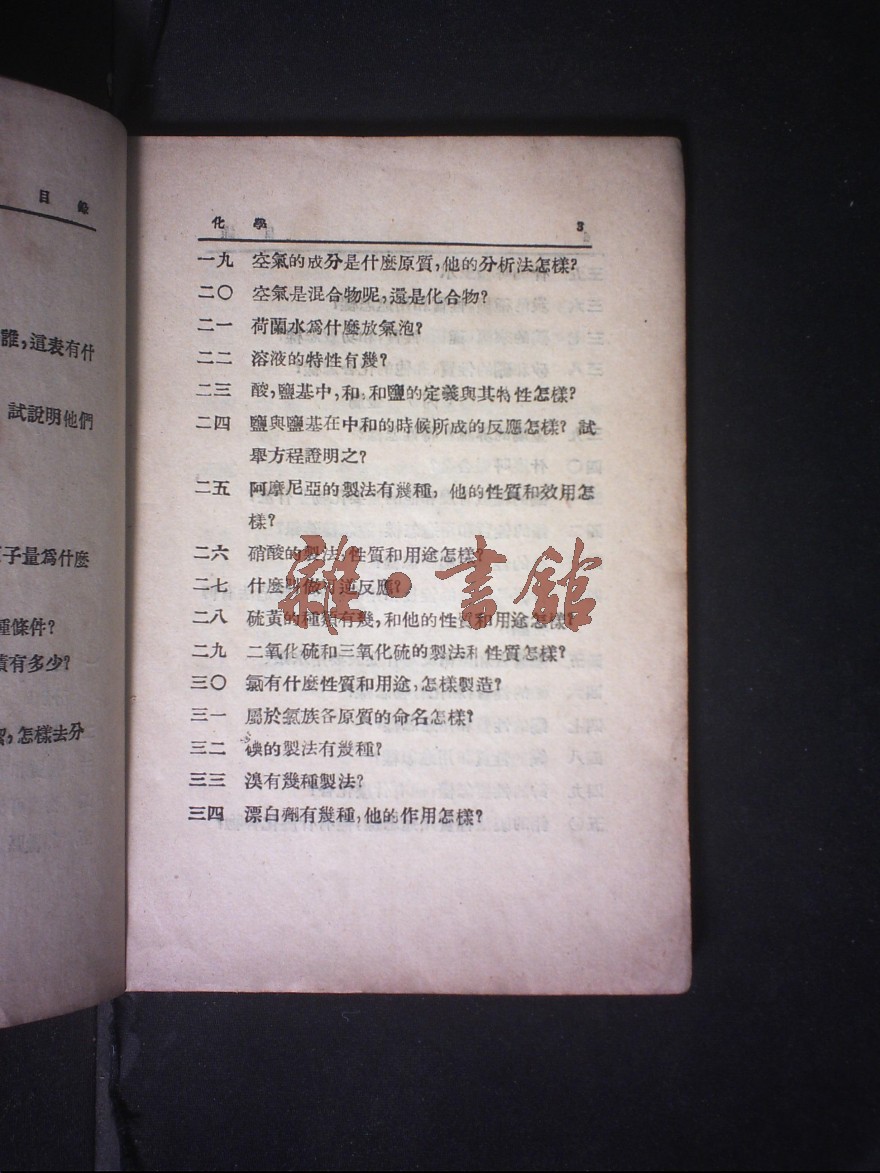 目錄
誰，這表有什
試說明他們
子量爲什麼
種條件？
有多少？
怎樣去分
化學 3
一九 空氣的成分是什麼原質，他的分析法怎樣？
二〇 空氣是混合物呢，還是化合物？
二一 荷蘭水爲什麼放氣泡？
二二 溶液的特性有幾？
二三 酸，鹽基中，和，和鹽的定義與其特性怎樣？
二四 鹽與鹽基在中和的時候所成的反應怎樣？試
舉方程證明之？
二五 阿摩尼亞的製法有幾種，他的性質和效用怎
樣？
二六 硝酸的製法，性質和用途怎樣？
二七 什麼叫做可逆反應？
二八 硫黃的種類有幾，和他的性質和用途怎樣？
二九 二氧化硫和三氧化硫的製法和性質怎樣？
三〇 氯有什麼性質和用途，怎樣製造？
三一 屬於氯族各原質的命名怎樣？
三二 碘的製法有幾種？
三三 溴有幾種製法？
三四 漂白劑有幾種，他的作用怎樣？
雜·書館